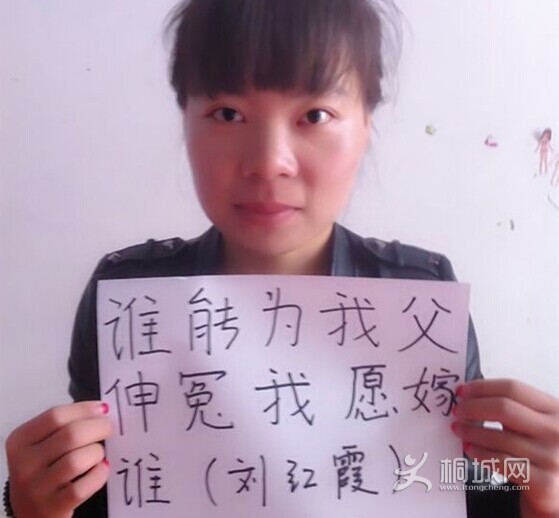 谁能为我父
伸冤我愿嫁
谁（刘红霞）
桐城网
www.itongcheng.com